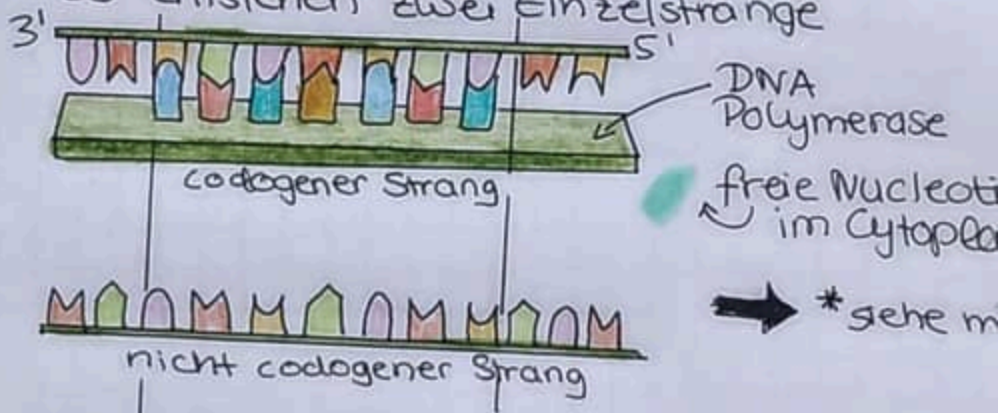 entstehen zwei Einzelstränge
3' 5'
DNA
Polymerase
codogener Strang
freie Nucleoti
im Cytopla
*siehe m
nicht codogener Strang